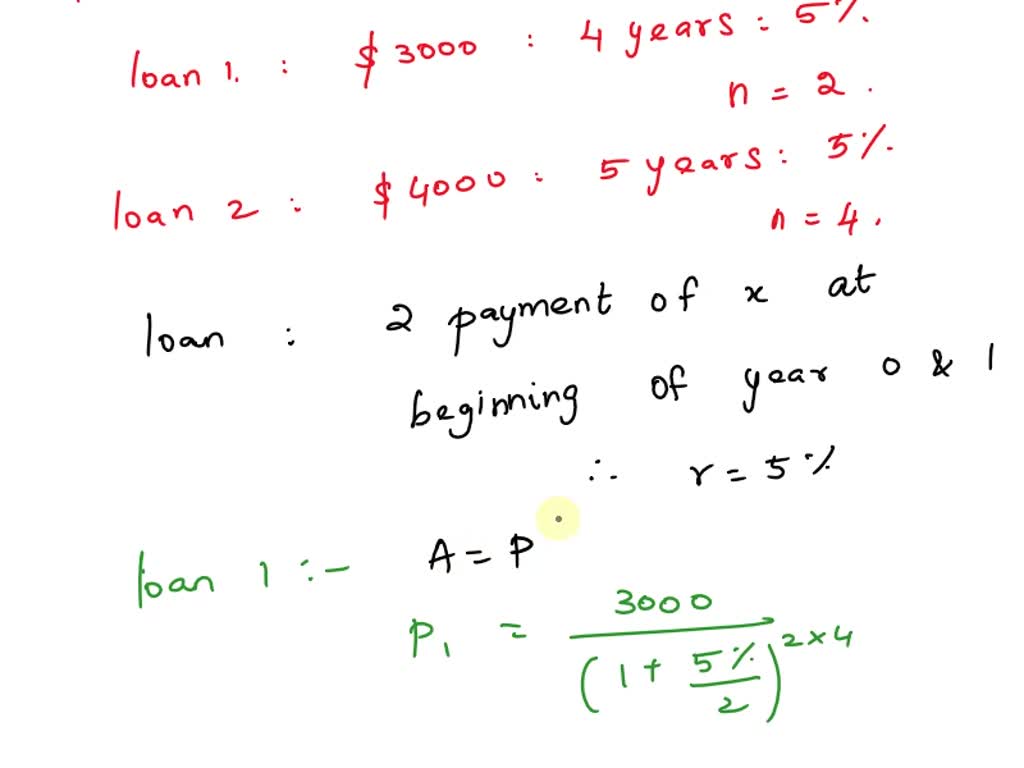 loan 1. : $ 3000 : 4 years : 5%.
n = 2 .
loan 2 : $ 4000 : 5 years : 5%.
n = 4 .
loan : 2 payment of x at
beginning of year 0 & 1
∴ r = 5%
loan 1 :- A = P
P₁ = 3000 / (1 + 5%/2)^2×4